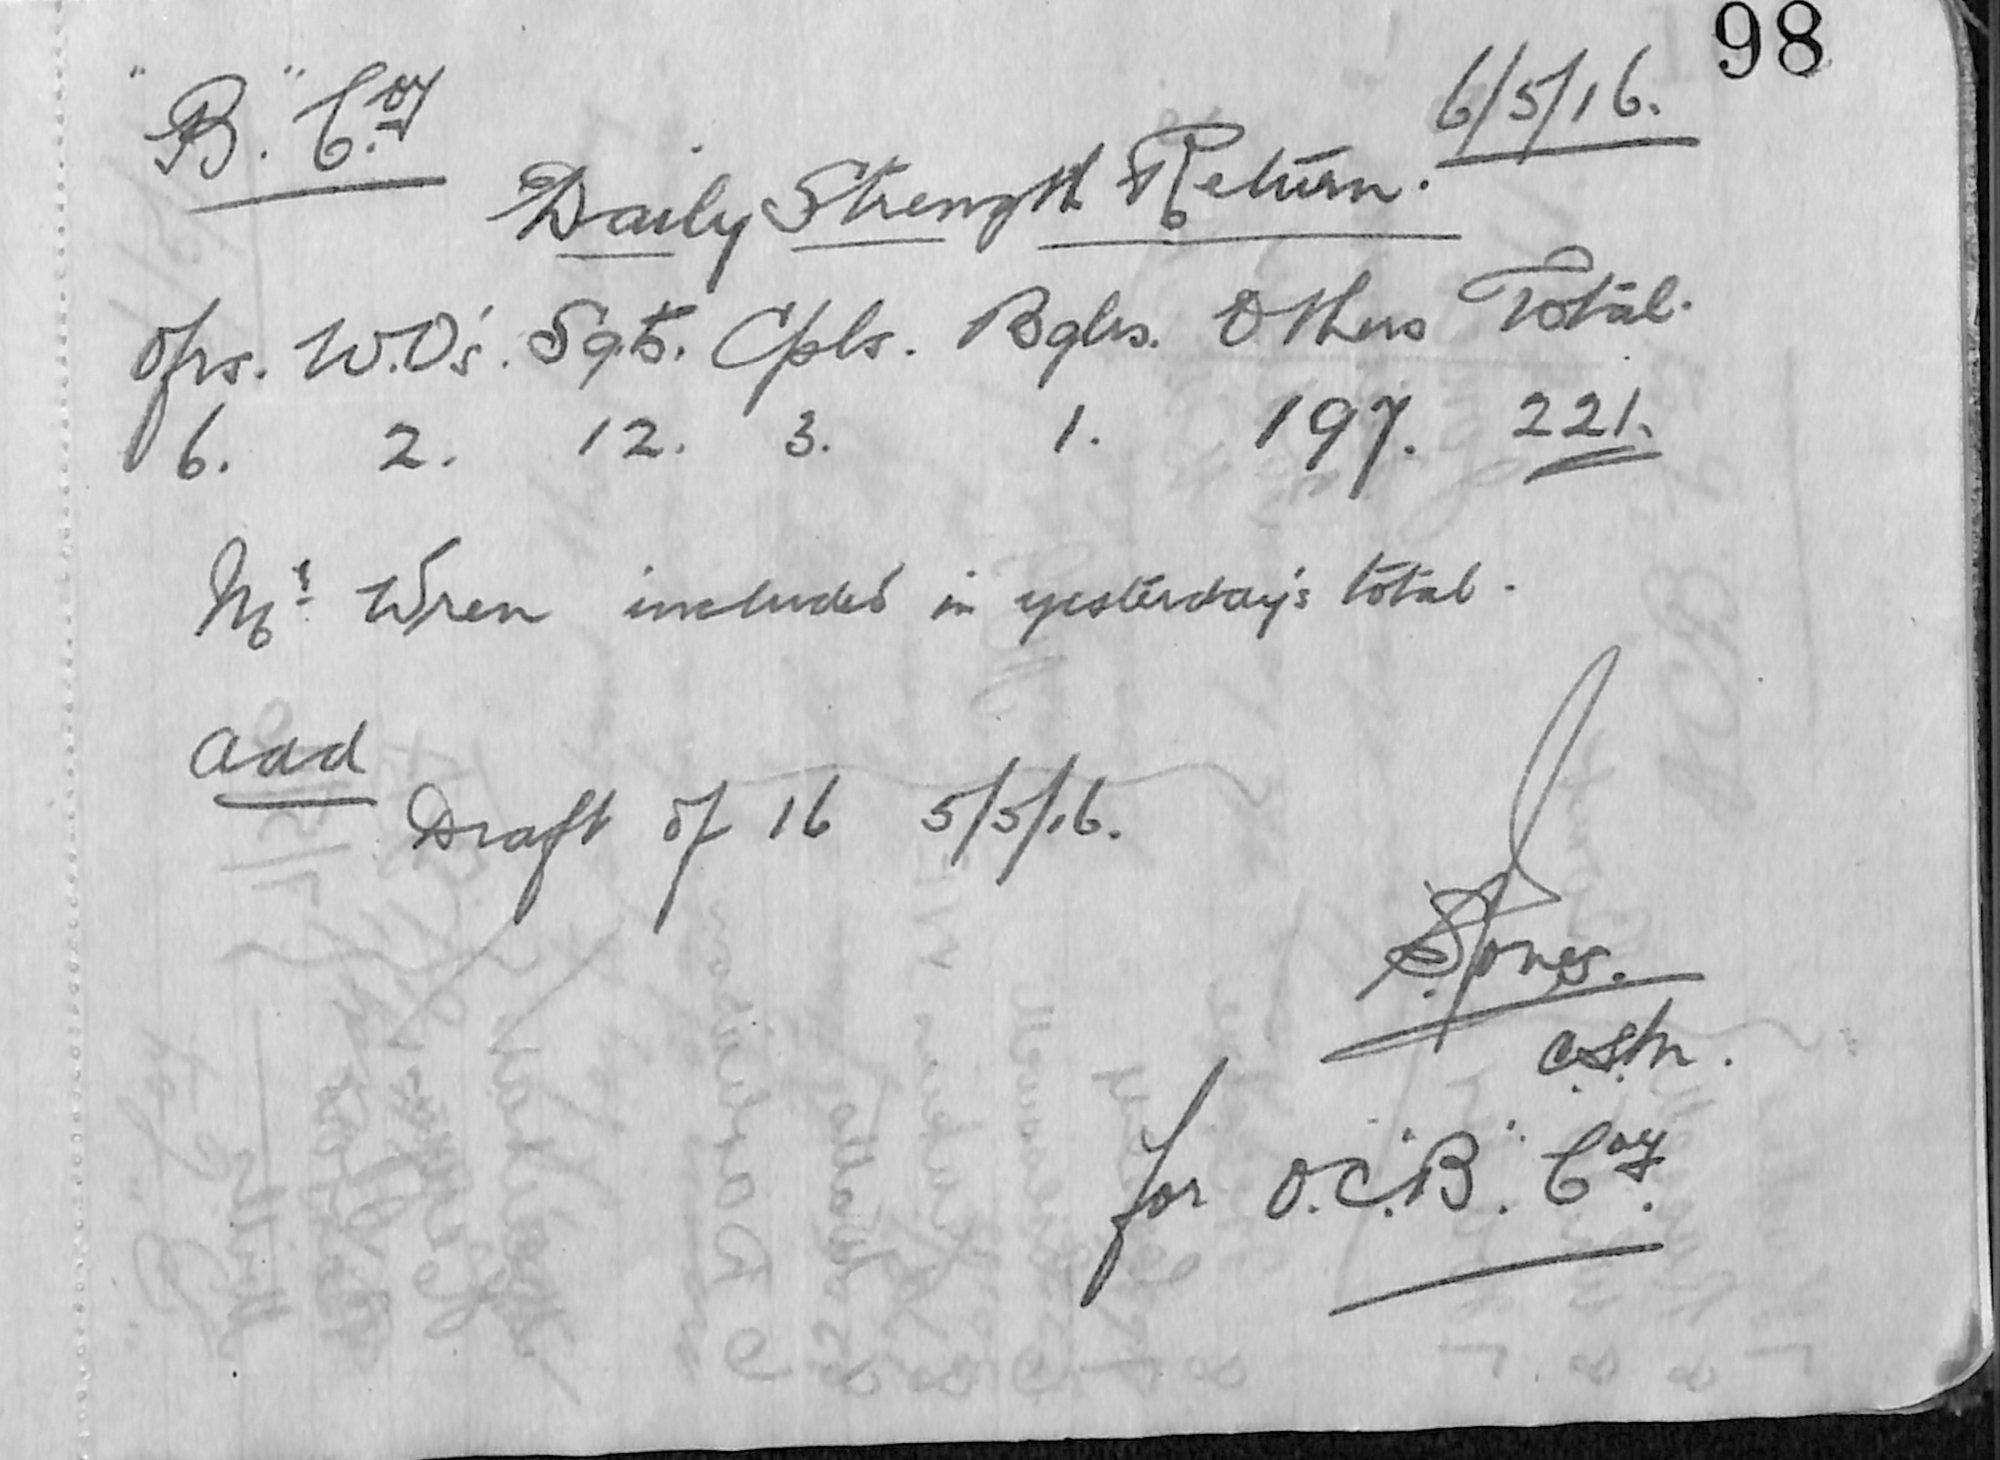 98
"B." Coy
6/5/16.
Daily Strength Return.
Ofrs. W.O's. Sgts. Cpls. Bglrs. Others Total.
6. 2. 12. 3. 1. 197. 221.
Mr. Wren included in yesterday's total.
Add
Draft of 16 5/5/16.
S. Jones.
C.S.M.
for O.C. "B". Coy.